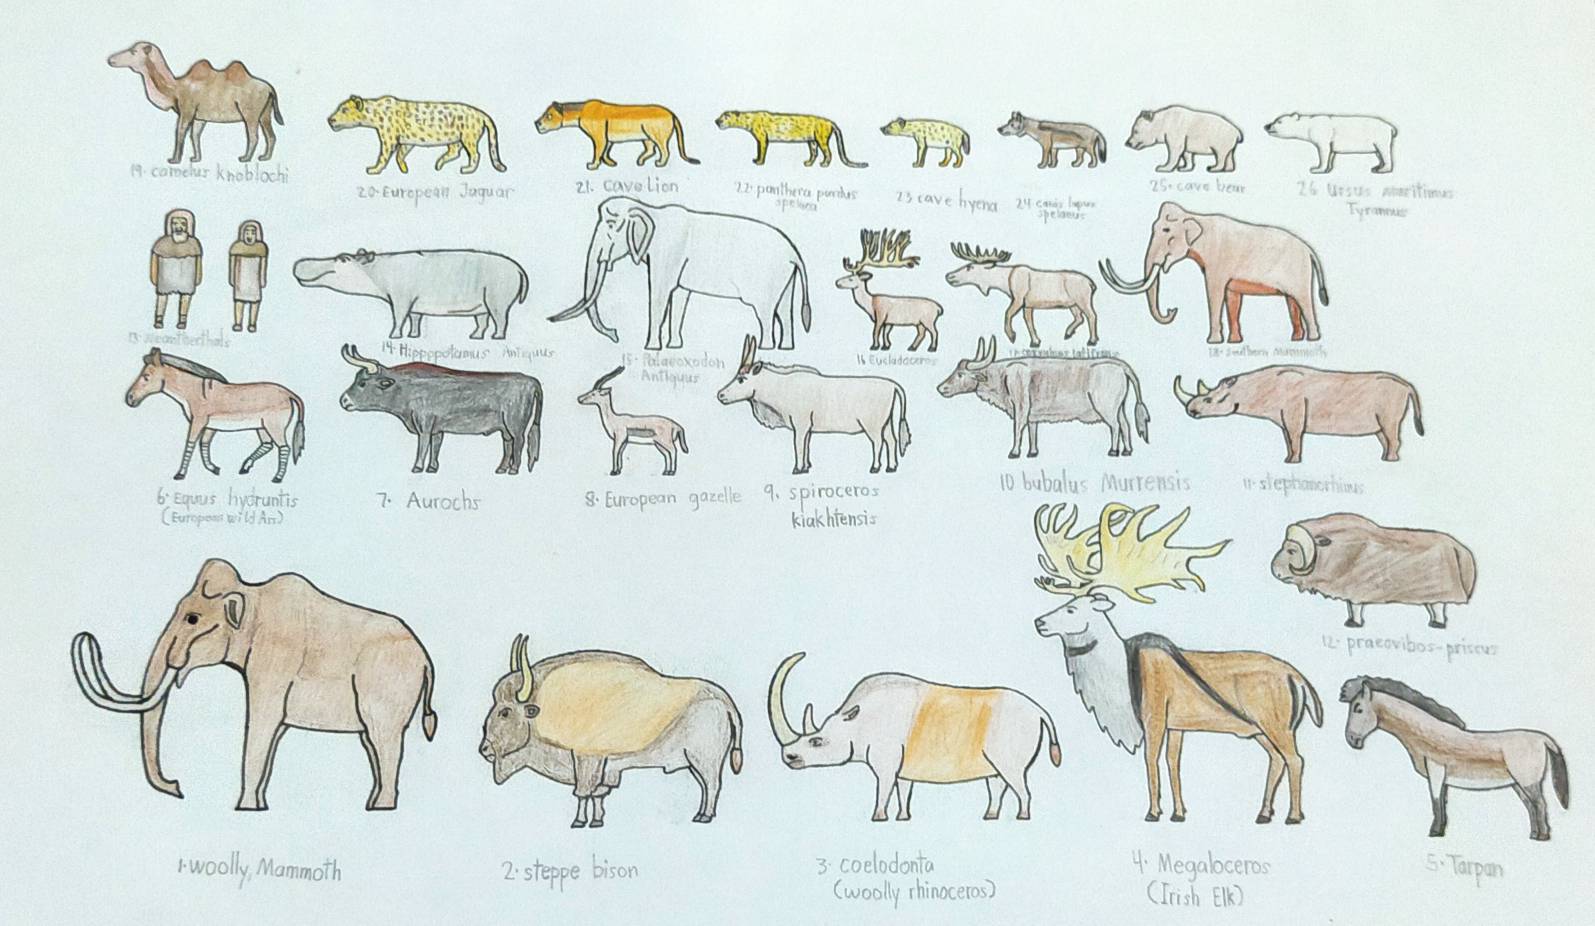 19. camelus knoblochi
20. European Jaguar
21. cave Lion
22. panthera pardus
spelaea
23 cave hyena
24 canis lupus
spelaeus
25. cave bear
26 Ursus maritimus
Tyrannus
13. Neantherthals
14. Hippopotamus Antiquus
15. Palaeoxodon
Antiquus
16 Eucladoceros
18. Southern Mammoth
6. Equus hydruntis
(European wild Ass)
7. Aurochs
8. European gazelle
9. spiroceros
kiakhtensis
10 bubalus Murrensis
11. stephanorhinus
12. praeovibos-priscus
1. woolly, Mammoth
2. steppe bison
3. coelodonta
(woolly rhinoceros)
4. Megaloceros
(Irish Elk)
5. Tarpan